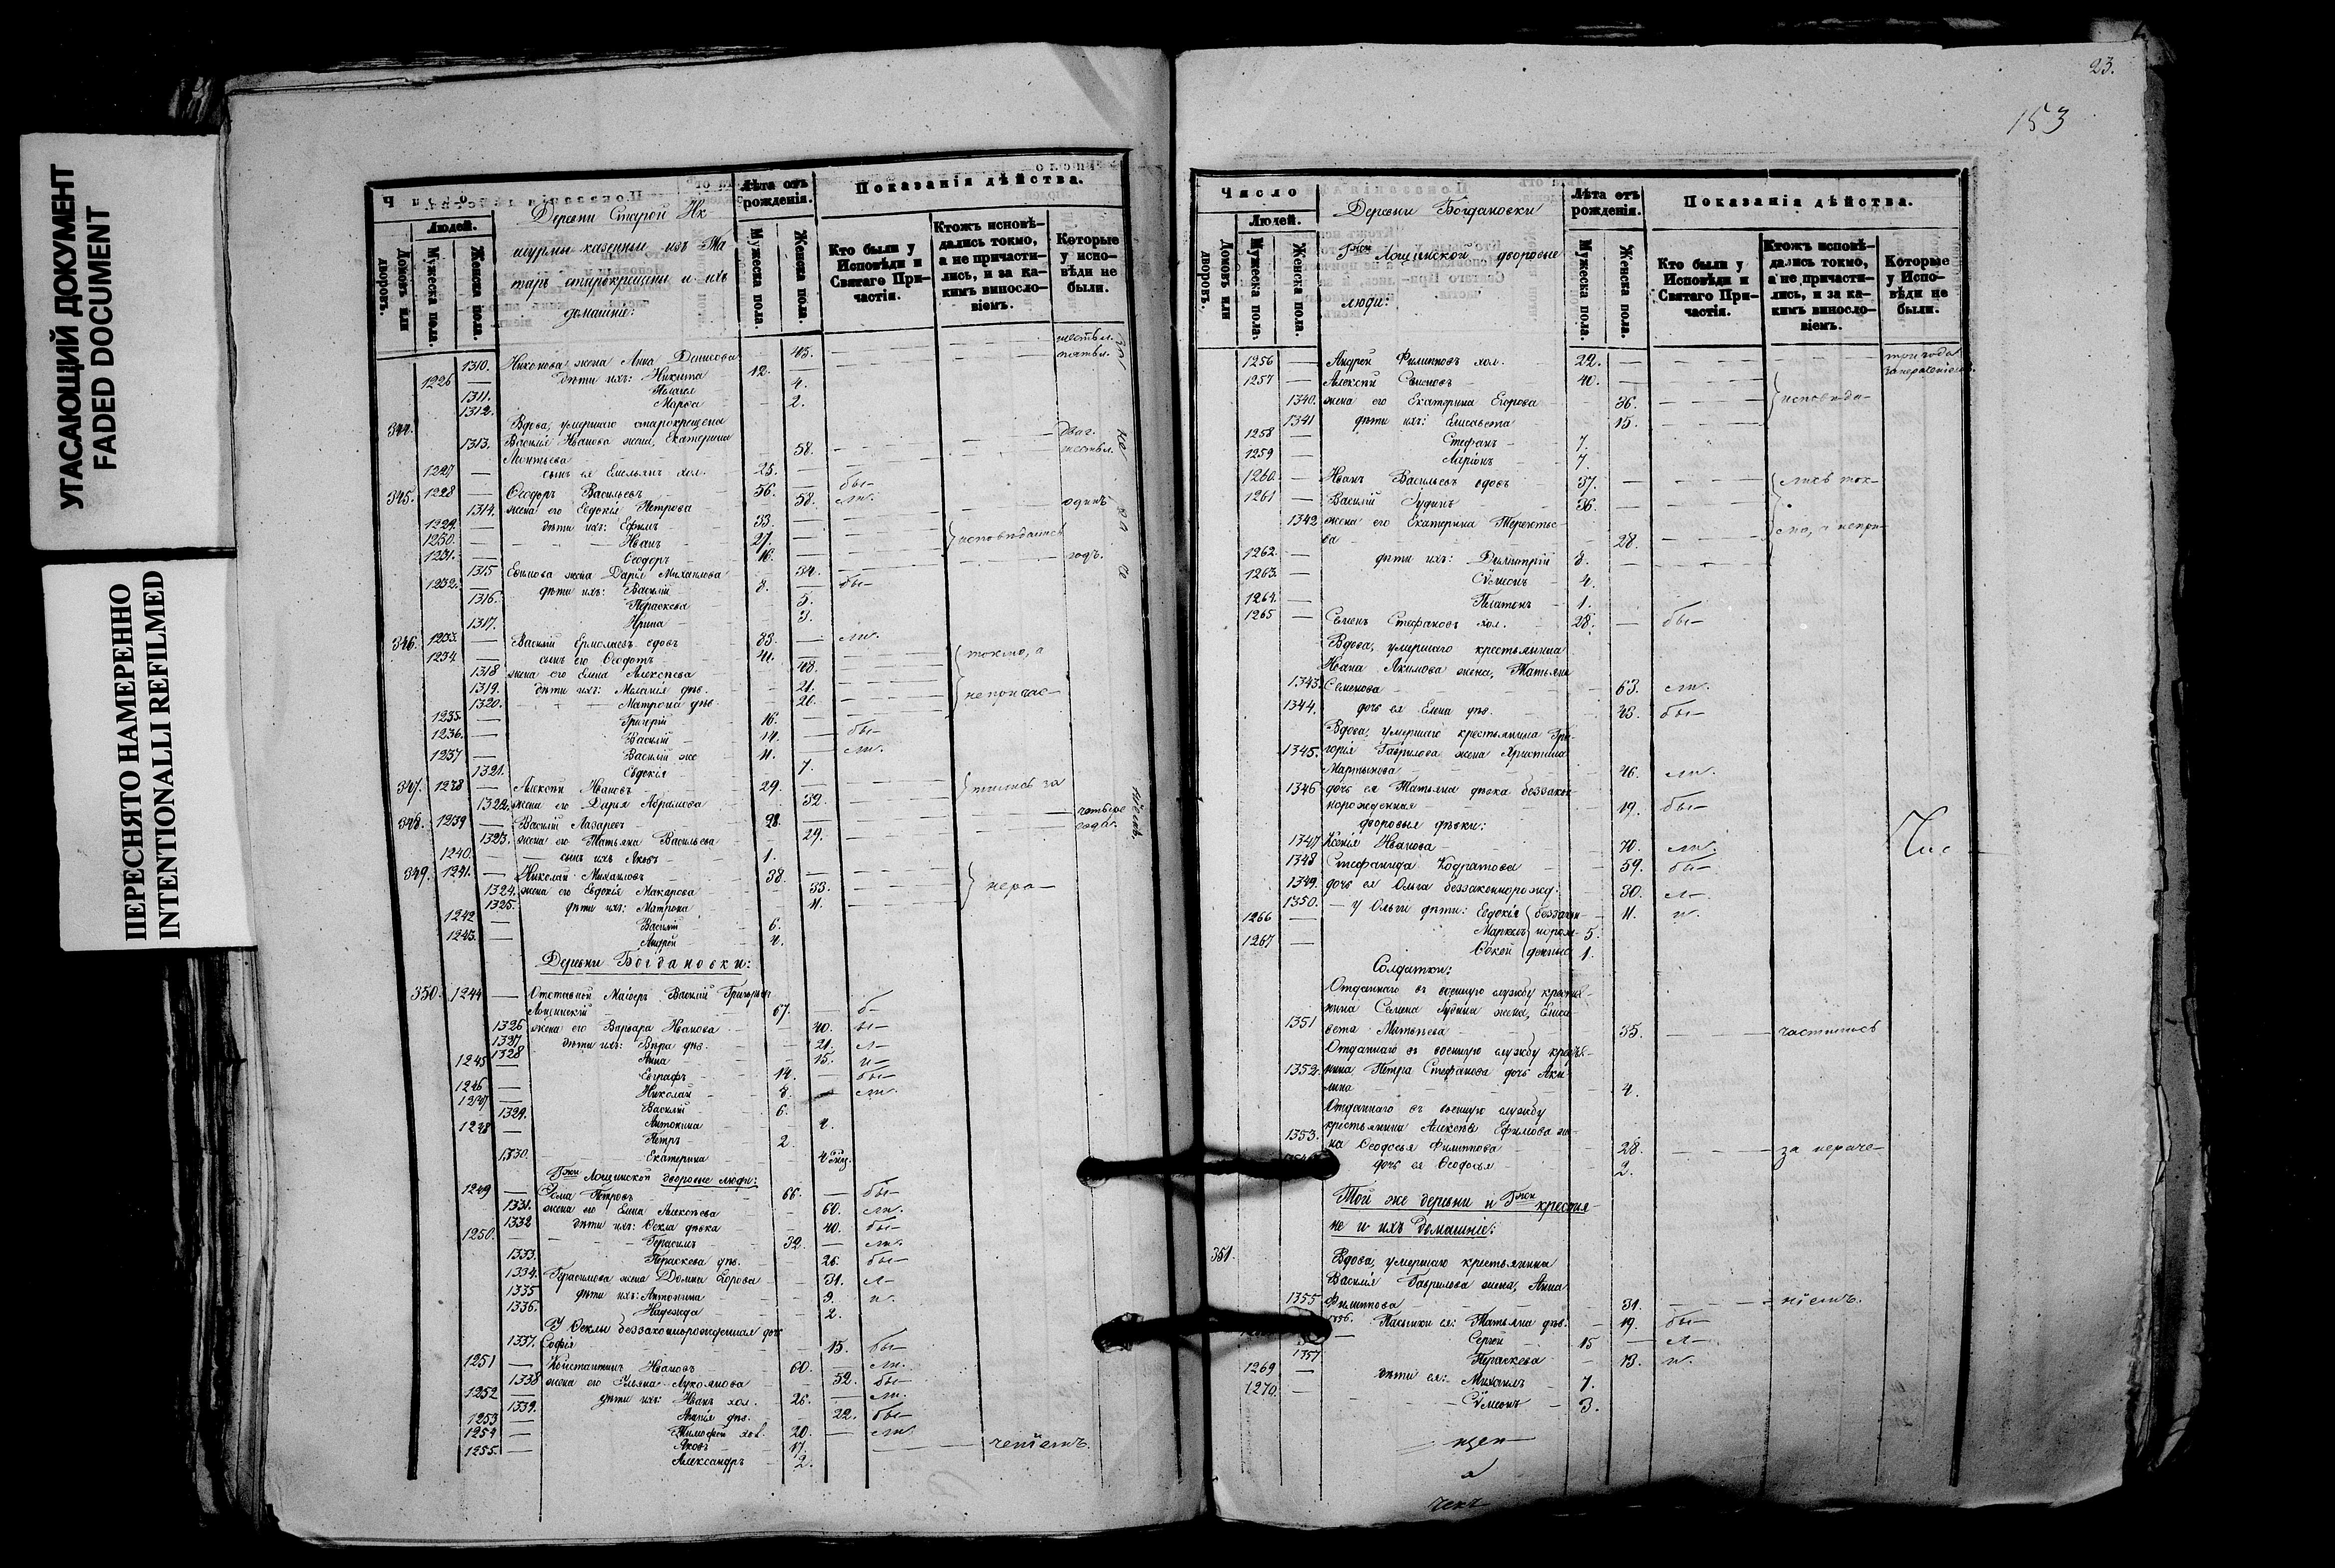 УГАСАЮЩИЙ ДОКУМЕНТ
FADED DOCUMENT
ПЕРЕСНЯТО НАМЕРЕННО
INTENTIONALLI REFILMED
Лѣта отъ рожденія.
Показанія дѣйства.
Людей.
Домовъ или дворовъ.
Мужеска пола.
Женска пола.
Деревни Старой
казенные изъ Та
таръ старокрещены и ихъ
домашніе:
Мужеска пола.
Женска пола.
Кто были у Исповѣди и Святаго Причастія.
Ктожъ исповѣдались токмо, а не причастились, и за какимъ винословіемъ.
Которые у исповѣди не были.
1310. Никонова жена Анна Денисова 45.
1226 — дѣти ихъ: Никита 12.
1311. Пелагея 4.
1312. Марѳа 2.
344. Вдова, умершаго старокрещена
1313. Василія Иванова жена, Екатерина
Леонтьева 58.
1227 — сынъ ея Емельянъ хол. 25.
345. 1228 — Ѳеодоръ Васильевъ 56. бы-
1314. жена его Евдокія Петрова 58. ли.
1229. — дѣти ихъ: Ефимъ 33.
1230. — Иванъ 27. исповѣдались
1231. — Ѳеодоръ 16.
1315 Ефимова жена Дарья Михаилова 34.
1232. дѣти ихъ: Василій 8. бы-
1316. Параскева 5.
1317. Ирина 3.
346. 1233. — Василій Ермолаевъ вдовъ 83. — ли.
1234 — сынъ его Ѳеодотъ 41. токмо, а
1318 жена его Елена Алексѣева 48.
1319. дѣти ихъ: Меланія дѣв. 21.
1320. Матрона дѣв. 20.
1235. Григорій 16.
1236. — Василій 14. — бы-
1237 — Василій же 11. — ли.
1321. Евдокія 7.
347. 1238 — Алексѣй Ивановъ 29.
1322. жена его Дарья Абрамова 32.
348. 1239 — Василій Лазаревъ 28.
1323. жена его Татьяна Васильева 29.
1240. — сынъ ихъ Яковъ 1.
349. 1241. — Николай Михаиловъ 38.
1324. жена его Евдокія Макарова 33. нера-
1325. дѣти ихъ: Матрона 11.
1242 — Василій 6.
1243. — Андрей 4.
Деревни Богдановки:
350. 1244 — Отставной Маіоръ Василій Григорьевъ
Лощинскій 67. — б-
1326 жена его Варвара Иванова 40. ы-
1327 дѣти ихъ: Вѣра дѣв. 21. л-
1328 Анна 15. и-
1245 — Евграфъ 14. — бы-
1246 — Николай 8. — ли.
1247 — Василій 6.
1329. Антонина 4.
1248 — Петръ 2
1330. Екатерина
Гжи Лощинской дворовые люди:
1249 — Ѳома Петровъ 66. — бы-
1331. жена его Елена Алексѣева 60. ли.
1332 дѣти ихъ: Ѳекла дѣвка 40. бы-
1250. — Герасимъ 32. — ли.
1333. Параскева дѣв. 26. бы-
1334. Герасимова жена Домна Егорова 31. л-
1335 дѣти ихъ: Антонина 9. и.
1336. Надежда 2.
У Ѳеклы беззаконнорожденная дочь
1337. Софія 15. бы-
1251 — Константинъ Ивановъ 60. — ли.
1338 жена его Ульяна Лукоянова 52. бы-
1252 — дѣти ихъ: Иванъ хол. 26. — ли.
1339. дѣв. 22. бы-
1253 — Тимоѳей хол. 20. — ли
1254 — Яковъ 17. чепіемъ.
1255. — Александръ 2.
23.
153
Число
Людей.
Домовъ или дворовъ.
Мужеска пола.
Женска пола.
Деревни Богдановки
Гжи Лощинской дворовые
люди:
Лѣта отъ рожденія.
Мужеска пола.
Женска пола.
Показанія дѣйства.
Кто были у Исповѣди и Святаго Причастія.
Ктожъ исповѣдались токмо, а не причастились, и за какимъ винословіемъ.
Которые у Исповѣди не были.
1256 — Андрей Филипповъ хол. 22. три года
1257 — Алексѣй 40.
1340. жена его Екатерина Егорова 36. исповѣда-
1341 дѣти ихъ: Елисавета 15.
1258 — Стефанъ 7.
1259 — Ларіонъ 7.
1260. — Иванъ Васильевъ вдовъ 37. лись ток-
1261 — Василій Гудинъ 36.
1342 жена его Екатерина Терентье
ва 28. мо, а непри-
1262. — дѣти ихъ: Димитрій 8.
1263. — Сѵмеонъ 4.
1264. — Платонъ 1.
1265 — Семенъ Стефановъ хол. 28. — бы-
Вдова, умершаго крестьянина
Ивана Акимова жена, Татьяна
1343. Семенова 63. ли.
1344. дочь ея Елена дѣв. 43. бы-
Вдова, умершаго крестьянина Гри-
1345. горія Гаврилова жена Христина
Мартынова 46. ли.
1346 дочь ея Татьяна дѣвка беззакон
норожденная 19. бы-
дворовыя дѣвки:
1347 Ксенія Иванова 70. ли.
1348 Стефанида Кодратова 59. бы-
1349. дочь ея Ольга беззаконнорожд. 30. л-
1350. У Ольги дѣти: Евдокія беззакон- 11. и.
1266 — Маркелъ норож- 5.
1267 — Фокой денные 1.
Солдатки:
Отданнаго въ военную службу крестья-
нина Семена Гудина жена, Елиса
1351 вета Матвѣева 35. частились
Отданнаго въ военную службу крестья-
1352. нина Петра Стефанова дочь Аку
лина 4.
Отданнаго въ военную службу
крестьянина Алексѣя Ефимова же-
1353. на Ѳеодосья Филиппова 28. за нераче-
дочь ея Ѳеодосья 2.
Той же деревни и Гжи крестья-
не и ихъ домашніе:
351. Вдова, умершаго крестьянина
Василія Гаврилова жена, Анна
1355 Филиппова 31. ніемъ.
1356. Пасынки ея: Татьяна дѣв. 19. бы-
Сергей 15 — л-
1357 Параскева 13. и.
1269 — дѣти ея: Михаилъ 7.
1270. — Сѵмеонъ 3.